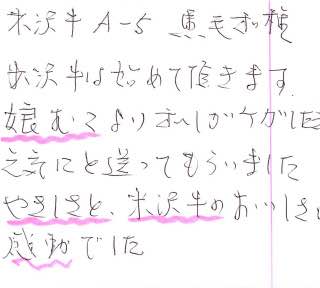 米沢牛 A-5 黒毛和種
米沢牛は始めて頂きます.
娘むこより私がケガした
元気にと送ってもらいました
やさしさと、米沢牛のおいしさに
感動でした